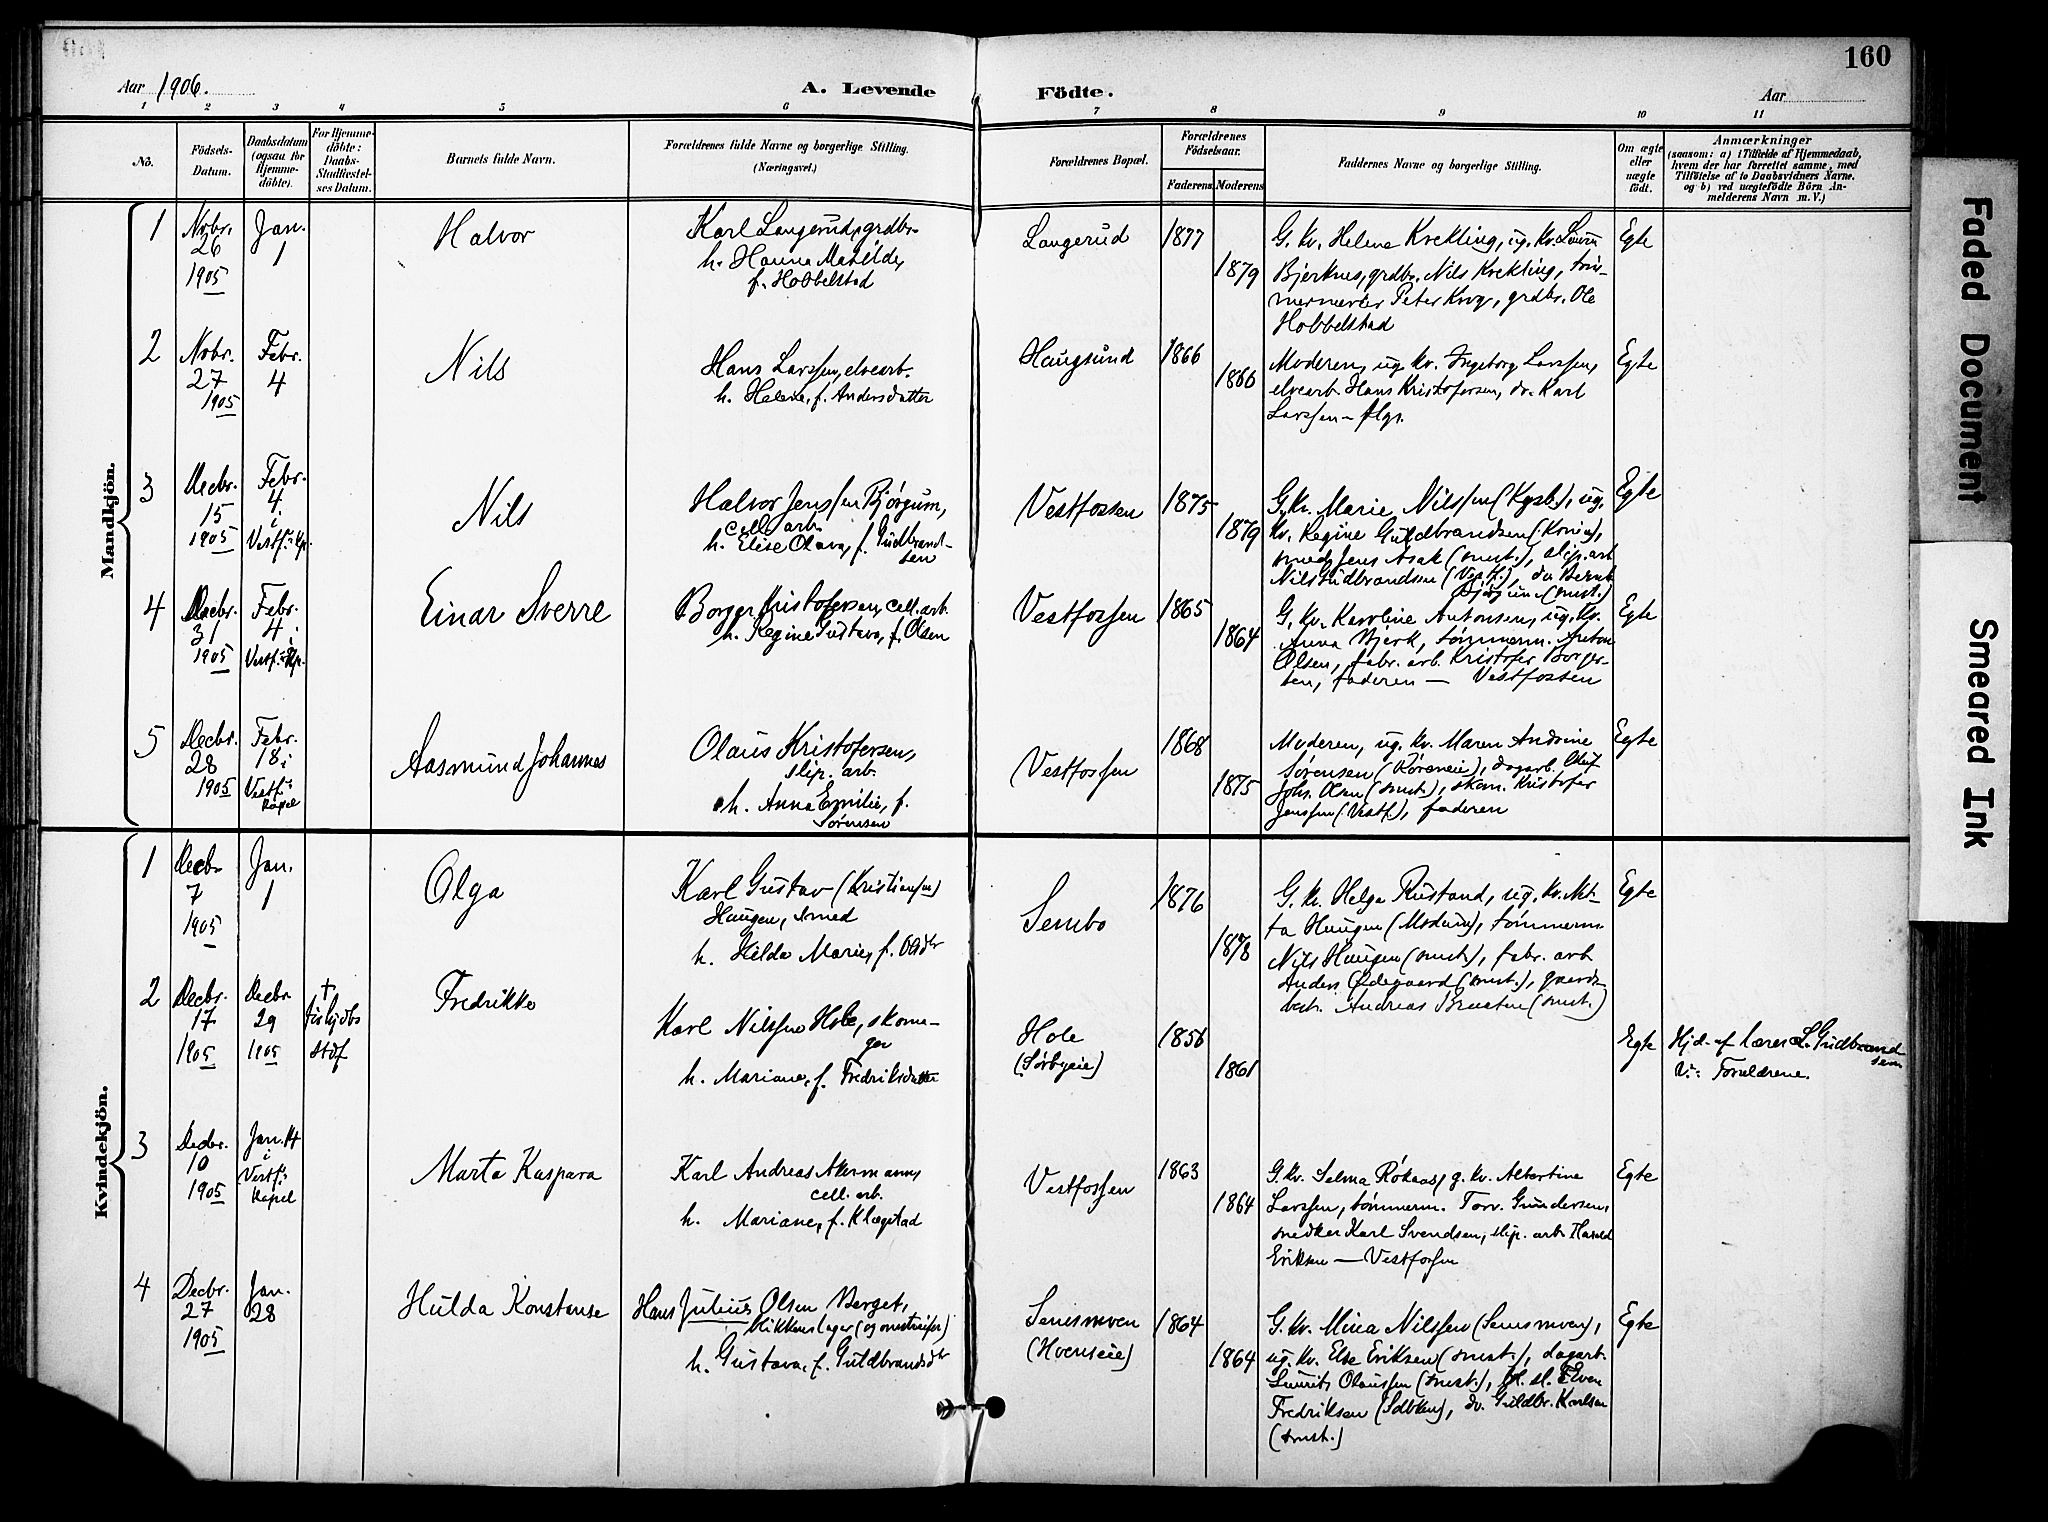 160
Aar 1906.
A. Levende Födte.
Aar
1 2 3 4 5 6 7 8 9 10 11
No.
Födsels-Datum.
Daabsdatum (ogsaa for Hjemme-döbte).
For Hjemme-döbte: Daabs-Stadfæstel-ses Datum.
Barnets fulde Navn.
Forældrenes fulde Navne og borgerlige Stilling. (Næringsvei.)
Forældrenes Bopæl.
Forældrenes Födselsaar.
Faderens. Moderens.
Faddernes Navne og borgerlige Stilling.
Om ægte eller uægte födt.
Anmærkninger
(saasom: a) i Tilfælde af Hjemmedaab, hvem der har forrettet samme, med Tilföielse af to Daabsvidners Navne. og b) ved uægtefödte Börn An-melderens Navn m. V.)
Mandkjön.
1 Novbr. 26 1905 Jan. 1
Halvor
Karl Langerud, grdbr.
h. Hanna Matilde,
f. Hobbelstad
Langerud 1877 1879
G. kv. Helene Krekling, ug. kv.
Bjerknes, grdbr. Nils Krekling,
Peter Krog, grdbr. Ole
Hobbelstad
Egte
2 Novbr. 27 1905 Febr. 4
Nils
Hans Larssen, elvearb.
h. Helene, f. Andersdatter
Haugsund 1866 1866
Moderen, ug. kv. Ingeborg Larssen,
elvearb. Hans Kristofersen, do. Karl
Larssen
Egte
3 Decbr. 15 1905 Febr. 4 i Vestf.s Kp.
Nils
Halvor Jenssen Bjørgum,
cell. arb.
h. Elise Olava, f. Gudbrand-
sen
Vestfossen 1875 1879
G. kv. Marie Nilssen (Kgsb.), ug.
kv. Regine Guldbrandsen
smed Jens Asak (smst.), slip. arb
Nils Gudbrandsen (Vestf.), do Bernt
Bjørgum (smst.)
Egte
4 Decbr. 31 1905 Febr. 4 i Vestf.s Kp.
Einar Sverre
Borger Kristofersen, cell. arb.
h. Regine Gustava, f. Olsen
Vestfossen 1865 1864
G. kv. Karoline Antonsen, ug. kv.
Anna Bjerk, tømmerm. Anton
Olsen, fabr. arb. Kristofer Borger-
sen, faderen — Vestfossen
Egte
5 Decbr. 28 1905 Febr. 18 i Vestf.s Kapel
Aasmund Johannes
Olaus Kristofersen,
slip. arb.
h. Anna Emilie, f.
Sørensen
Vestfossen 1868 1875
Moderen, ug. kv. Maren Andrine
Sørensen, dagarb. Oluf
Johs. Olsen (smst.), skom. Kristofer
Jenssen (Vestf.), faderen
Egte
Kvindekjön.
1 Decbr 7 1905 Jan. 1
Olga
Karl Gustav (Kristiansen)
Haugen, smed
h. Hilda Marie, f.
Sembo 1876 1878
G. kv. Helga Rustand, ug. kv. Mit-
ta Haugen (Modum), tømmerm.
Nils Haugen (smst.), fabr. arb
Anders Ødegaard (smst.), gaard-
best. Andreas Braaten (smst.)
Egte
2 Decbr. 17 1905 Decbr 29 1905 †
stdf
Fredrikke
Karl Nilssen Hole, skoma-
ger
h. Mariane, f. Fredriksdatter
Hole
(Sørbyeie) 1856 1861
Egte
Hjd. af lærer L. Gudbrand
sen
V.: Forældrene.
3 Decbr. 10 1905 Jan. 14 i Vestf.s Kapel
Marta Kaspara
Karl Andreas Akermann,
cell. arb.
h. Mariane, f. Klægstad
Vestfossen 1863 1864
G. kv. Selma Røkaas, g. kv. Albertine
Larssen, tømmerm. Torv. Gundersen,
snedker Karl Svendsen, slip. arb Harald
Eriksen — Vestfossen
Egte
4 Decbr. 27 1905 Jan. 28
Hulda Konstanse
Hans Julius Olsen Berget,
blikkenslager (og omstreifer)
h. Gustava, f. Guldbrandsdtr
Semsmoen
(Hvenseie) 1864 1864
G. kv. Mina Nilssen (Semsmoen),
ug. kv. Else Eriksen (smst.), dagarb.
Laurits Olaussen (smst.), bl. sl. Even
Fredriksen, do. Guldbr. Karlsen
(smst.)
Egte
Faded Document
Smeared Ink